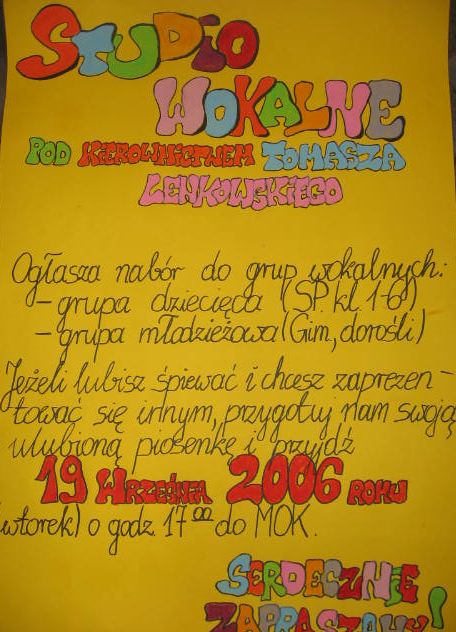 STUDIO
WOKALNE
POD KIEROWNICTWEM TOMASZA
LENKOWSKIEGO
Ogłasza nabór do grup wokalnych:
- grupa dziecięca (SP. kl 1-6)
- grupa młodzieżowa (Gim, dorośli)
Jeżeli lubisz śpiewać i chcesz zaprezen-
tować się innym, przygotuj nam swoją
ulubioną piosenkę i przyjdź
19 WRZEŚNIA 2006 ROKU
(wtorek) o godz. 17 00 do MOK.
SERDECZNIE
ZAPRASZAMY!